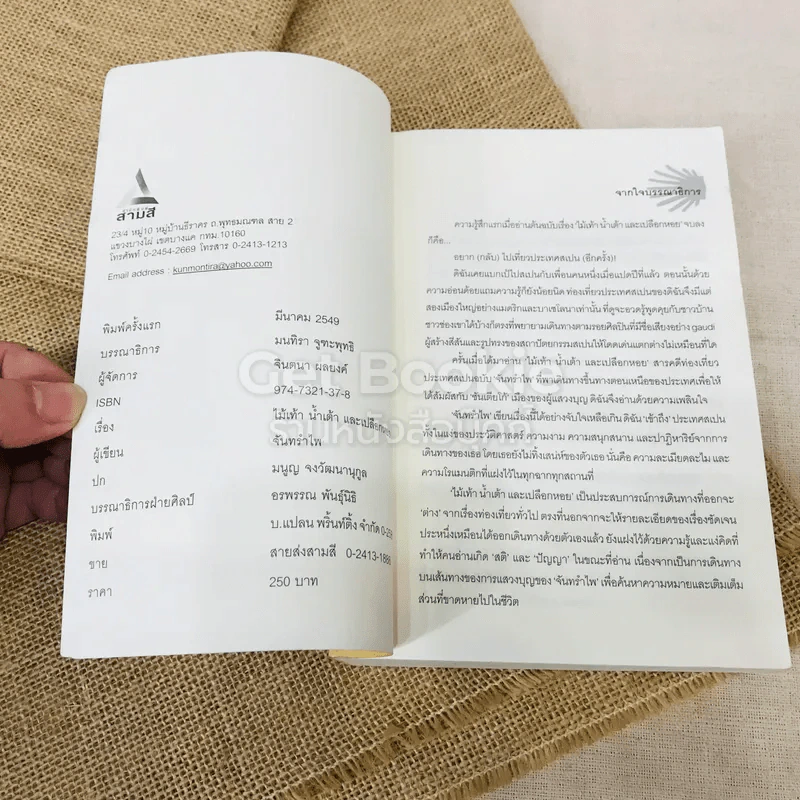 สามสี
23/4 หมู่10 หมู่บ้านธีราคร ถ.พุทธมณฑล สาย 2
แขวงบางไผ่ เขตบางแค กทม.10160
โทรศัพท์ 0-2454-2669 โทรสาร 0-2413-1213
Email address : kunmontira@yahoo.com
พิมพ์ครั้งแรก มีนาคม 2549
บรรณาธิการ มนทิรา จูฑะพุทธิ
ผู้จัดการ จินตนา ผลยงค์
ISBN 974-7321-37-8
เรื่อง ไม้เท้า น้ำเต้า และเปลือกหอย
ผู้เขียน จันทร์ำไพ
ปก มนูญ จงวัฒนานุกูล
บรรณาธิการฝ่ายศิลป์ อรพรรณ พันธุ์นิธิ
พิมพ์ บ.แปลน พริ้นท์ติ้ง จำกัด
ขาย สายส่งสามสี 0-2413-1886
ราคา 250 บาท
จากใจบรรณาธิการ
ความรู้สึกแรกเมื่ออ่านต้นฉบับเรื่อง 'ไม้เท้า น้ำเต้า และเปลือกหอย' จบลง
ก็คือ...
อยาก (กลับ) ไปเที่ยวประเทศสเปน (อีกครั้ง)!
ดิฉันเคยแบกเป้ไปสเปนกับเพื่อนคนหนึ่งเมื่อแปดปีที่แล้ว ตอนนั้นด้วย
ความอ่อนด้อยแถมความรู้ก็ยังน้อยนิด ท่องเที่ยวประเทศสเปนของดิฉันจึงมีแค่
สองเมืองใหญ่อย่างแมดริกและบาเซโลนาเท่านั้น ที่ดูจะอวดรู้พูดคุยกับชาวบ้าน
ชาวช่องเขาได้บ้างก็ตรงที่พยายามเดินทางตามรอยศิลปินที่มีชื่อเสียงอย่าง gaudi
ผู้สร้างสีสันและรูปทรงของสถาปัตยกรรมสเปนให้โดดเด่นแตกต่างไม่เหมือนที่ใด
ครั้นเมื่อได้มาอ่าน 'ไม้เท้า น้ำเต้า และเปลือกหอย' สารคดีท่องเที่ยว
ประเทศสเปนฉบับ 'จันทร์ำไพ' ที่พาเดินทางขึ้นทางตอนเหนือของประเทศเพื่อให้
ได้สัมผัสกับ 'ซันเตียโก้' เมืองของผู้แสวงบุญ ดิฉันจึงอ่านด้วยความเพลินใจ
'จันทร์ำไพ' เขียนเรื่องนี้ได้อย่างจับใจเหลือเกิน ดิฉัน 'เข้าถึง' ประเทศสเปน
ทั้งในแง่ของประวัติศาสตร์ ความงาม ความสนุกสนาน และปาฏิหาริย์จากการ
เดินทางของเธอ โดยเธอยังไม่ทิ้งเสน่ห์ของตัวเธอ นั่นคือ ความละเมียดละไม และ
ความโรแมนติกที่แฝงไว้ในทุกฉากทุกสถานที่
'ไม้เท้า น้ำเต้า และเปลือกหอย' เป็นประสบการณ์การเดินทางที่ออกจะ
'ต่าง' จากเรื่องท่องเที่ยวทั่วไป ตรงที่นอกจากจะให้รายละเอียดของเรื่องชัดเจน
ประหนึ่งเหมือนได้ออกเดินทางด้วยตัวเองแล้ว ยังแฝงไว้ด้วยความรู้และแง่คิดที่
ทำให้คนอ่านเกิด 'สติ' และ 'ปัญญา' ในขณะที่อ่าน เนื่องจากเป็นการเดินทาง
บนเส้นทางของการแสวงบุญของ 'จันทร์ำไพ' เพื่อค้นหาความหมายและเติมเต็ม
ส่วนที่ขาดหายไปในชีวิต
Get Bookie
ร้านหนังสือมุกกี้